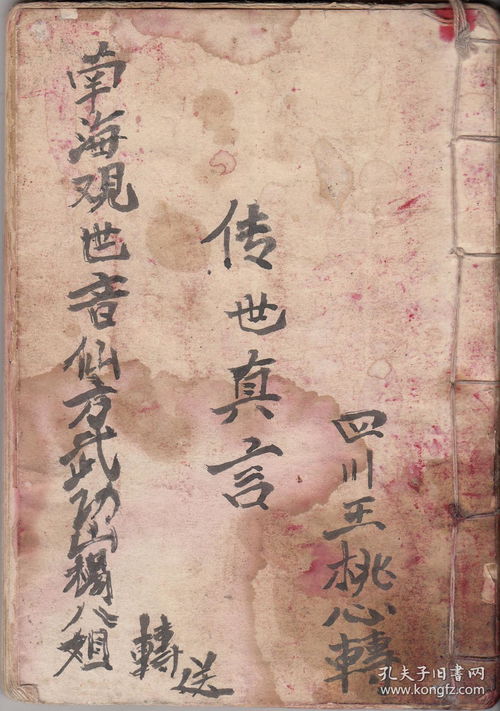 四川王桃心轉
传世真言
南海观世音仙方武功山楊八姐
轉送
孔夫子旧书网
www.kongfz.com